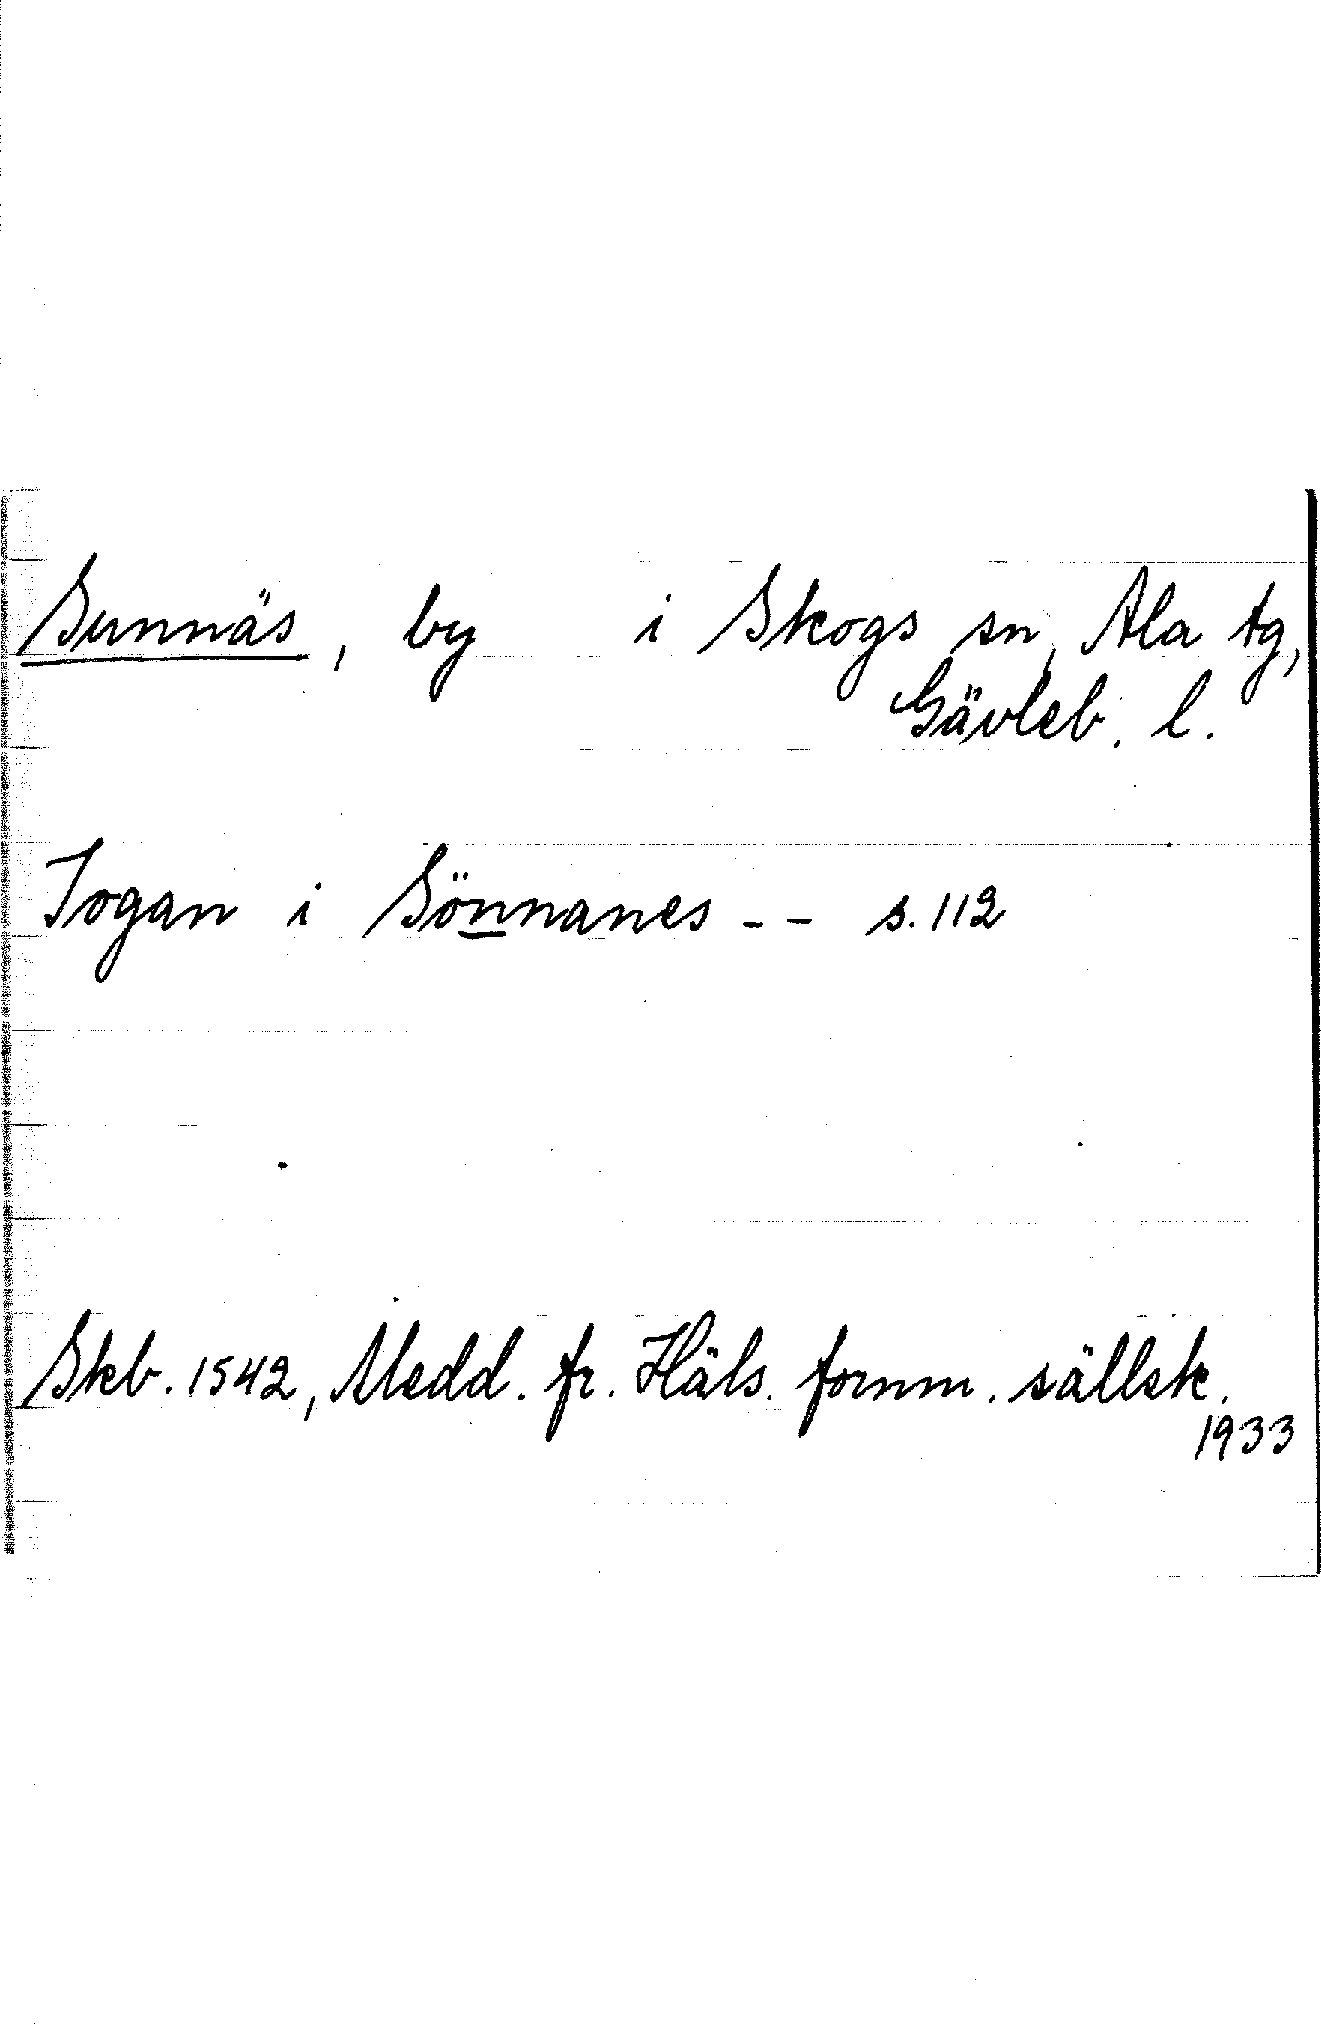 Sunnäs, by i Skogs sn, Ala tg,
Gävleb. l.
Jogan i Sönnanes -- s. 112
Skb. 1542, Medd. fr. Häls. fornm. sällsk.
1933